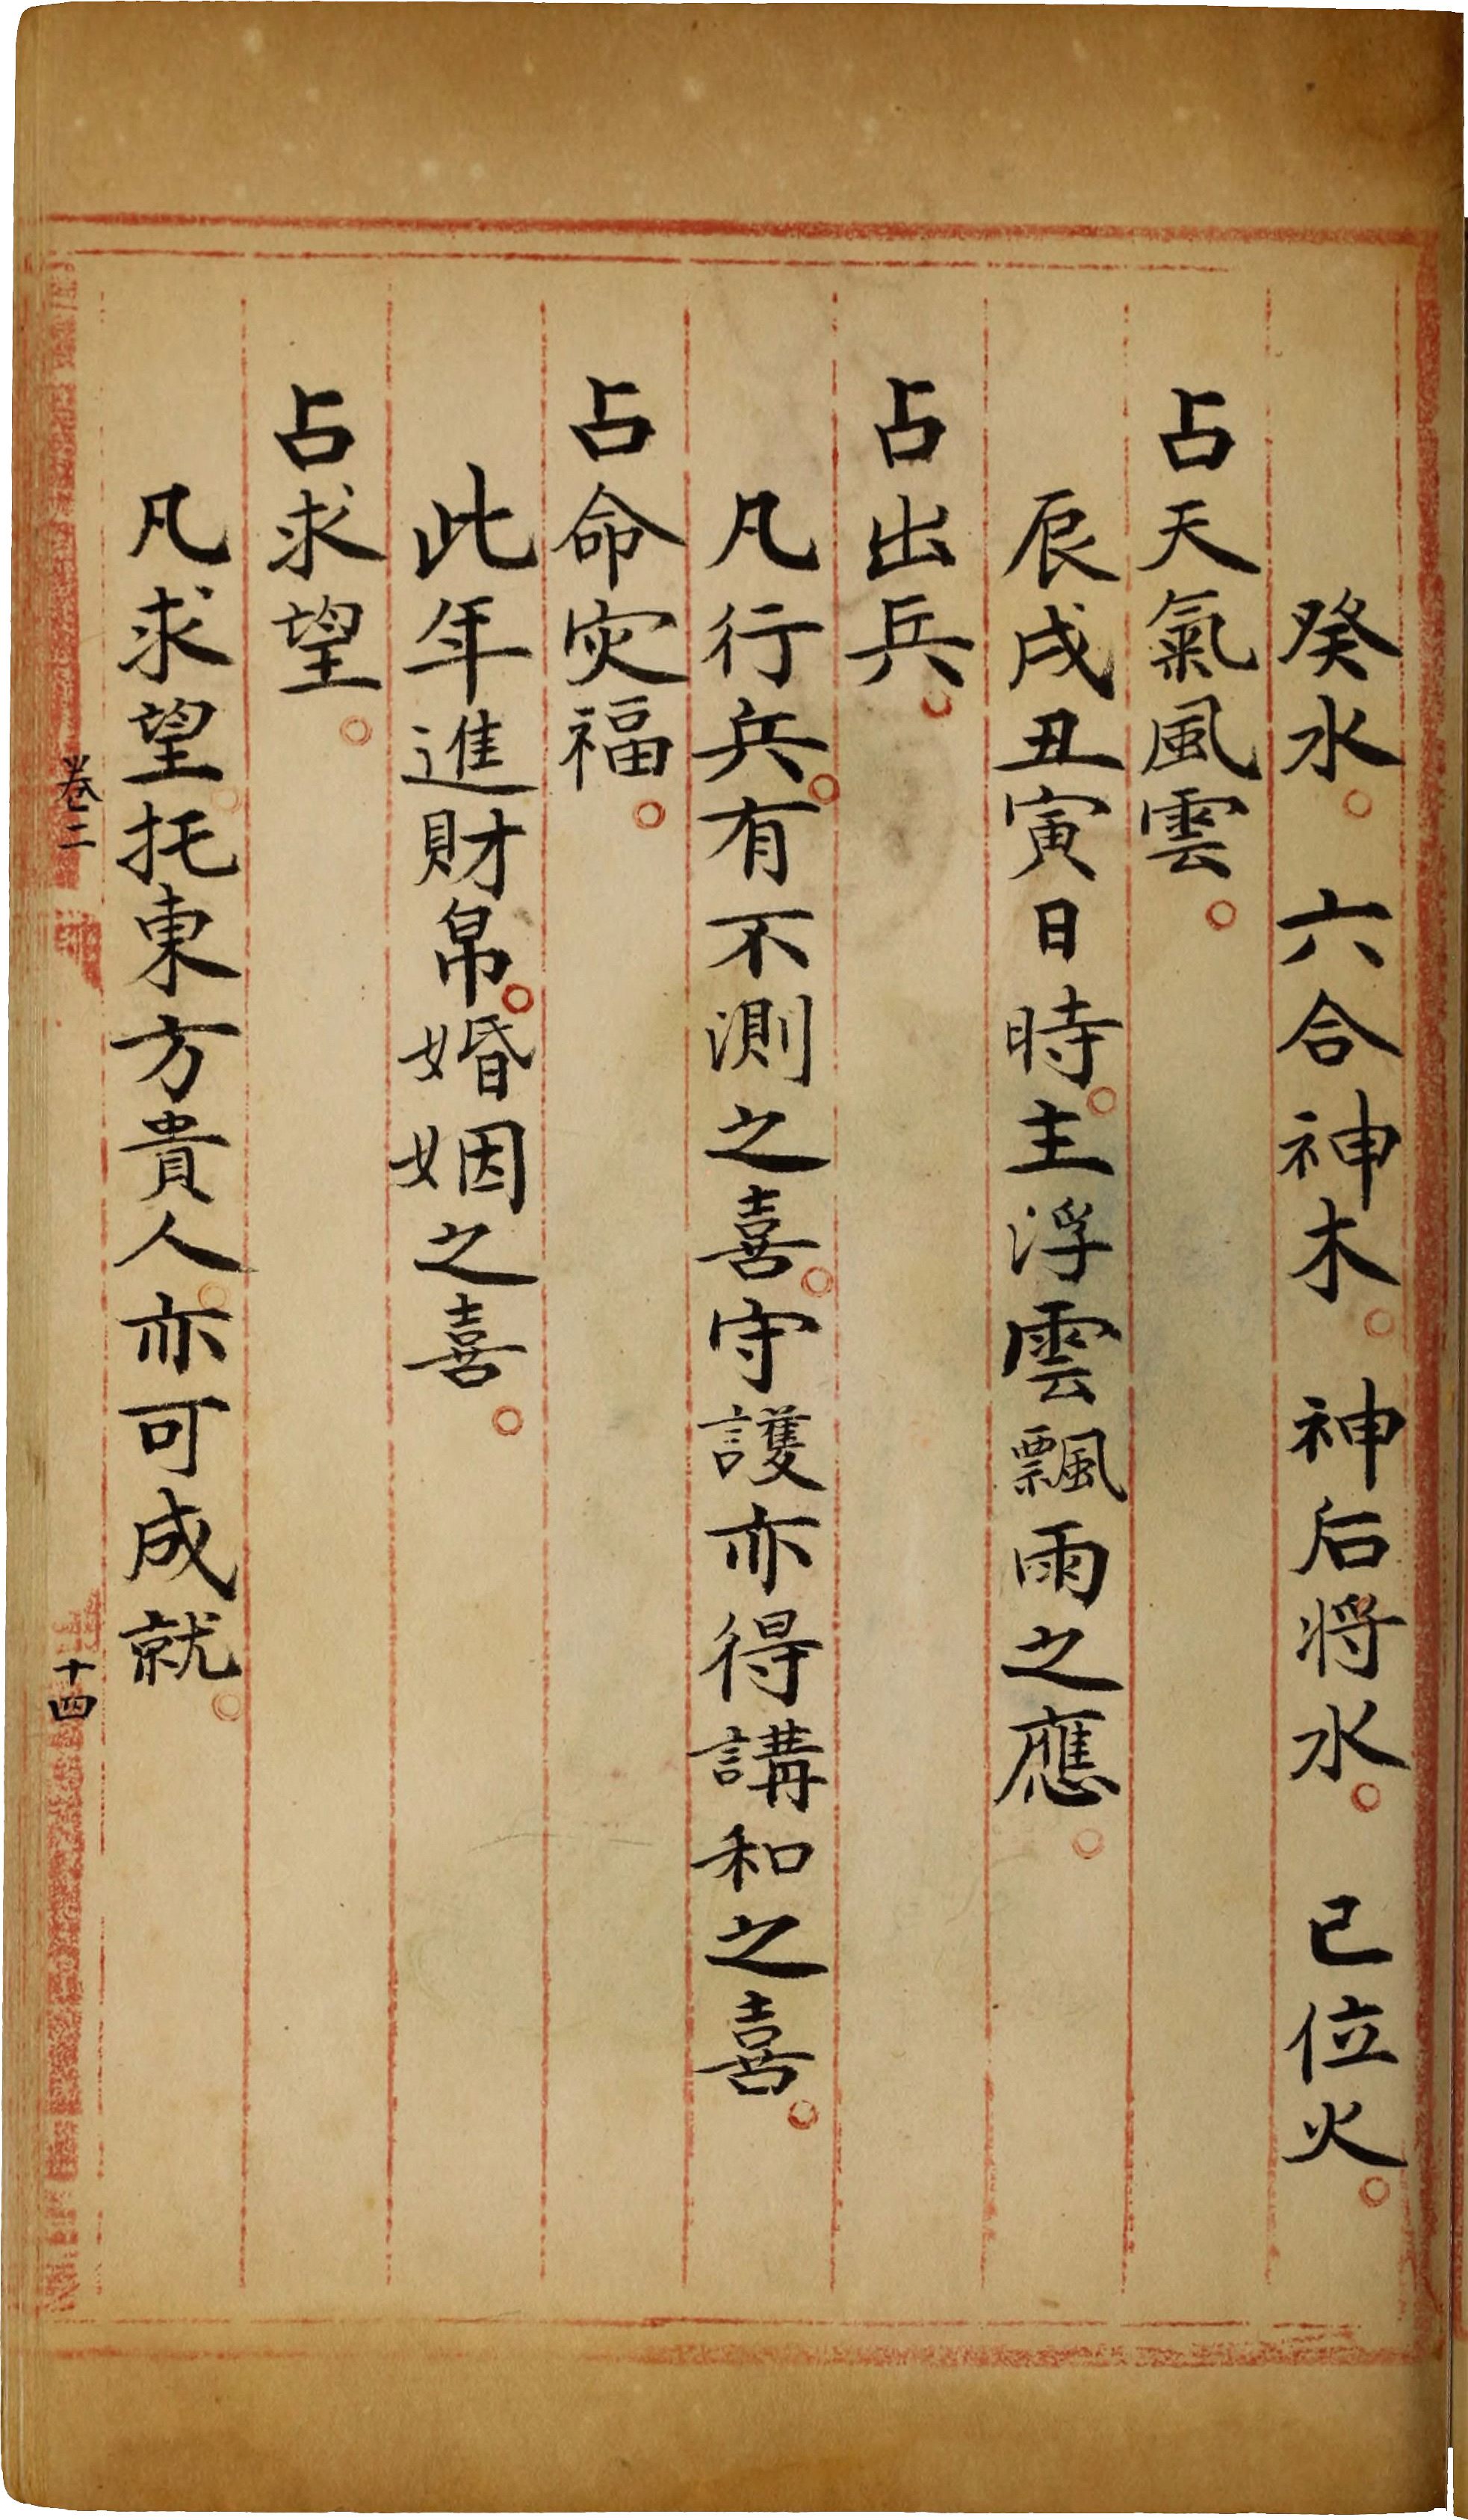 癸水。六合神木。神后将水。巳位火。
占天氣風雲。
辰戌丑寅日時。主浮雲飄雨之應。
占出兵。
凡行兵。有不測之喜。守護亦得講和之喜。
占命灾福。
此年進財帛。婚姻之喜。
占求望。
凡求望。托東方貴人。亦可成就。
卷二
十四